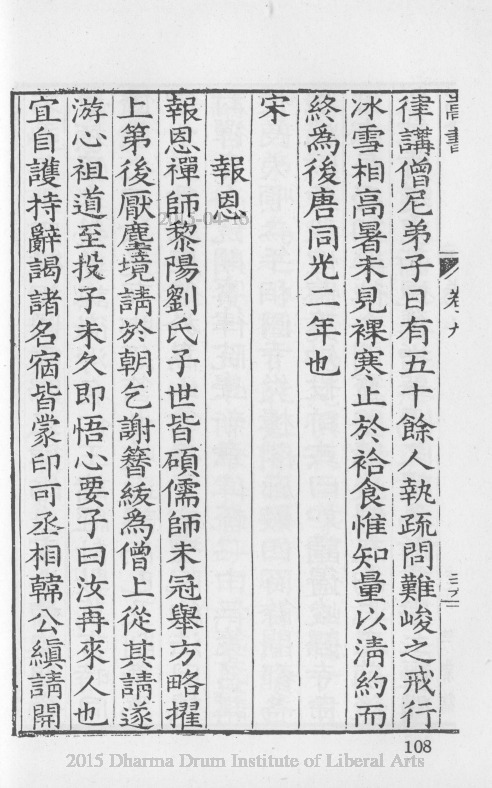 高書
卷九
律講僧尼弟子日有五十餘人執疏問難峻之戒行
冰雪相高暑未見裸寒止於袷食惟知量以清約而
終為後唐同光二年也
宋
報恩
報恩禪師黎陽劉氏子世皆碩儒師未冠舉方略擢
上第後厭塵境請於朝乞謝簪紱為僧上從其請遂
游心祖道至投子未久即悟心要子曰汝再來人也
宜自護持辭謁諸名宿皆蒙印可丞相韓公縝請開
108
2015 Dharma Drum Institute of Liberal Arts